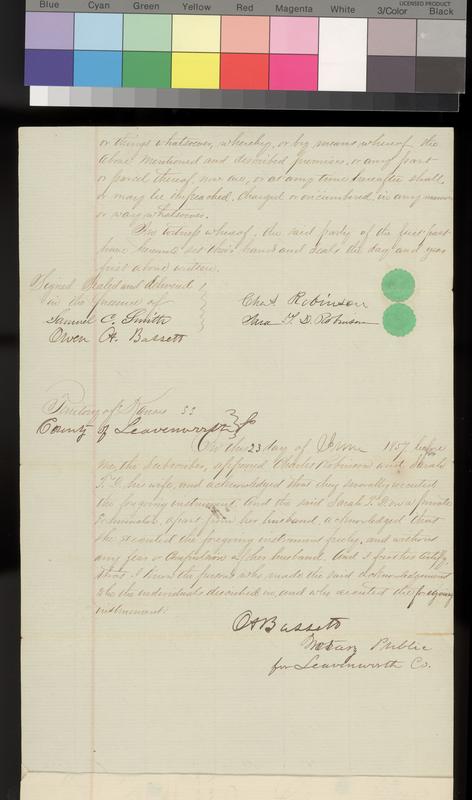 Blue Cyan Green Yellow Red Magenta White 3/Color Black
LICENSED PRODUCT
or things whatsoever, whereby, or by means whereof the
above mentioned and described premises, or any part
or parcel thereof now are, or at any time hereafter shall,
or may be impeached, charged or incumbered, in any manner
or way whatsoever.
In witness whereof, the said party of the first part
have hereunto set their hands and seals the day and year
first above written.
Signed Sealed and delivered
in the presence of
Samuel C. Smith
Owen A. Bassett
Chas Robinson
Sara T. D. Robinson
Territory of Kansas SS
County of Leavenworth
On this 23 day of June 1857 before
me, the subscriber, appeared Charles Robinson and Sarah
T. D. his wife, and acknowledged that they severally executed
the forgoing instrument And the said Sarah T. D. on a private
examination, apart from her husband, acknowledged that
she executed the forgoing instrument freely, and without
any fear or compulsion of her husband. And I further certify
that I know the persons who made the said acknowledgement
to be the individuals described in, and who executed the foregoing
instrument.
OABassett
Notary Public
for Leavenworth Co.